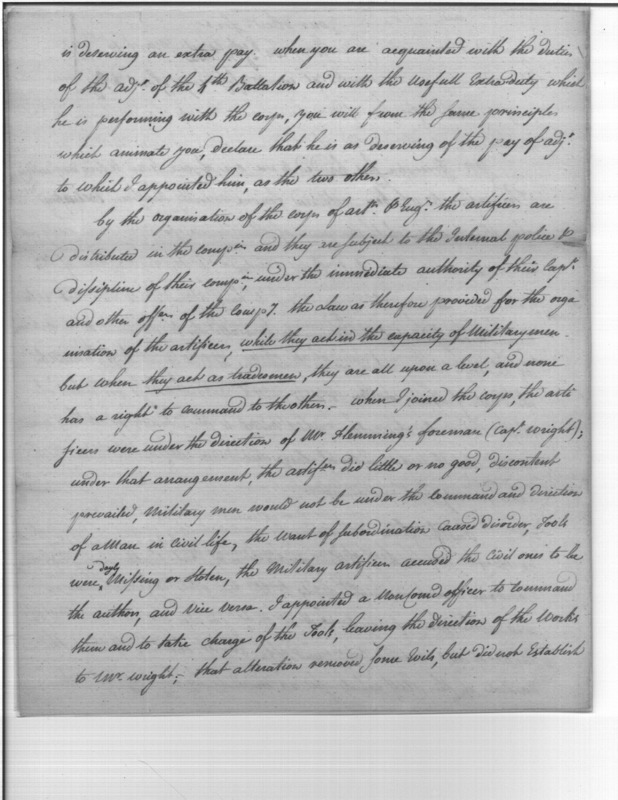 is deserving an extra pay. when you are acquainted with the duties
of the adjt. of the 4th Battalion and with the Usefull Extraduty which
he is performing with the corps, you will from the same principles
which animate you, declare that he is as deserving of the pay of adjt.
to which I appointed him, as the two others.
by the organisation of the corps of arty. & Engrs. the artificers are
distributed in the companies and they are subject to the Internal police &
dissipline of their companies, under the immediate authority of their Capt.
and other offrs. of the Comp. the law as therefore provided for the orga
nisation of the artificers, while they act in the capacity of Military men.
but when they act as tradesmen, they are all upon a level, and none
has a right to command to the others. when I joined the corps, the arti
ficers were under the direction of Mr. Flemming's foreman (Capt. Wright);
under that arrangement, the artificers did little or no good, Discontent
prevailed, Military men would not be under the Command and Direction
of a Man in Civil life, the want of subordination caused disorder, Tools
were dayly Missing or Stolen, the Military artificers accused the Civil ones to be
the authors, and Vice Versa. I appointed a Non Comd officer to Command
them and to take charge of the Tools, leaving the direction of the Works
to Mr. Wright; that alteration removed some Evils, but did not Establish